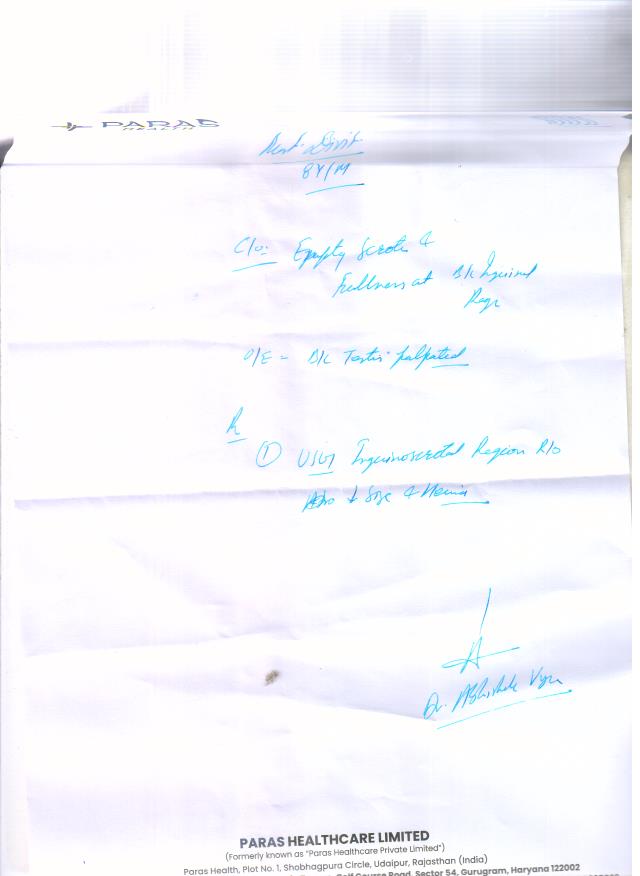 PARAS
HEALTH
8Y/M
C/o:- Empty Scrotum &
Fullness at B/L Inguinal
Regn
O/E = B/L Testis palpated
Rx
① USG Inguinoscrotal Region R/o
& Size & Hernia
Dr. Abhishek Vyas
PARAS HEALTHCARE LIMITED
(Formerly known as "Paras Healthcare Private Limited")
Paras Health, Plot No. 1, Shobhagpura Circle, Udaipur, Rajasthan (India)
Golf Course Road, Sector 54, Gurugram, Haryana 122002